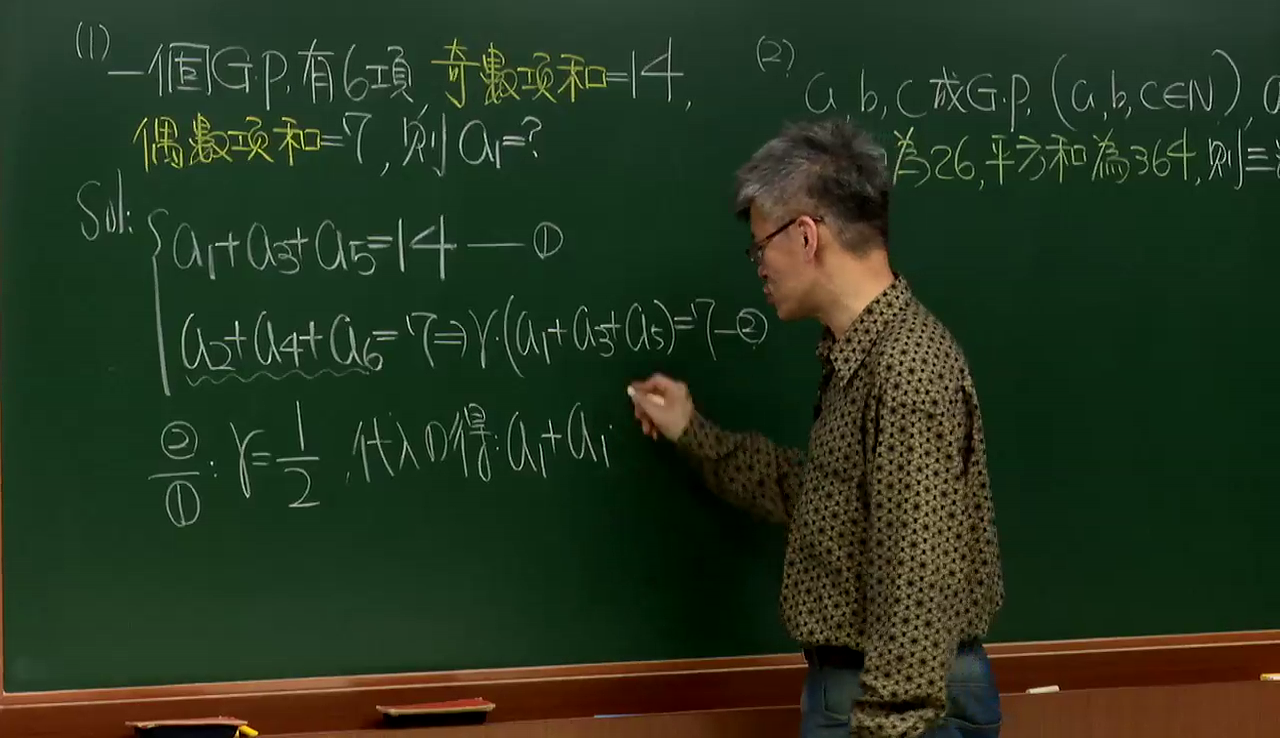 (1) 一個G.P.有6項,奇數项和=14,
偶數项和=7,则a₁=?
Sol: a₁+a₃+a₅=14—①
a₂+a₄+a₆=7⇒γ·(a₁+a₃+a₅)=7—②
②/①: γ=1/2,代入①得:a₁+a₁·
(2) a,b,c成G.P.,(a,b,c∈N),
為26,平方和為364,则三